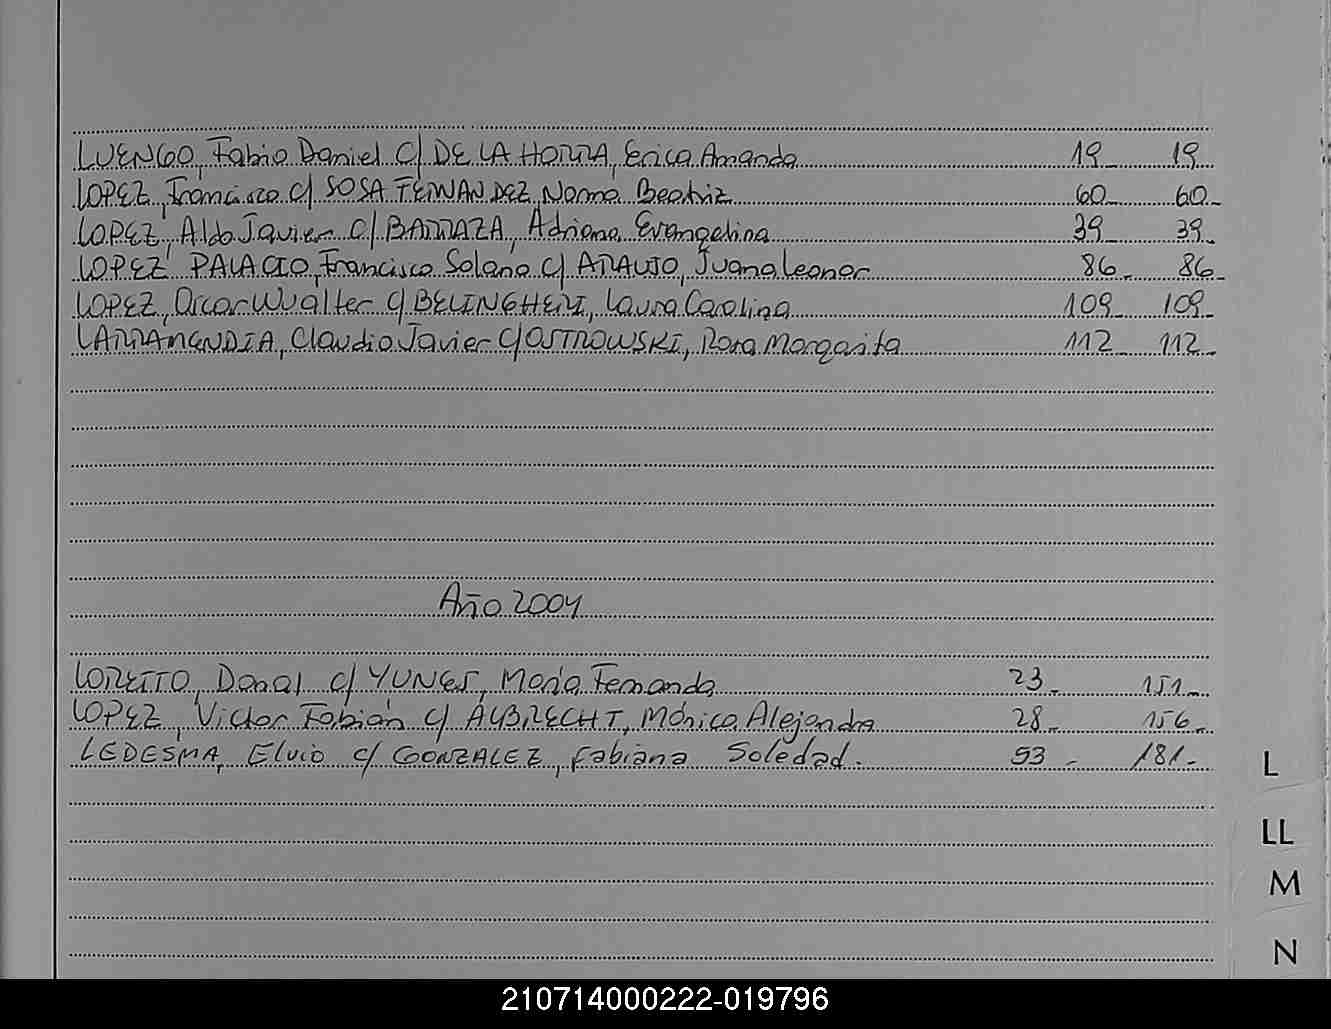 LUENGO, Fabio Daniel c/ DE LA HORRA, Erica Amanda 19_ 19_
LOPEZ, Francisco c/ SOSA FERNANDEZ, Norma Beatriz 60_ 60_
LOPEZ, Aldo Javier c/ BARRAZA, Adriana Evangelina 39_ 39_
LOPEZ PALACIO, Francisco Solano c/ ARAUJO, Juana Leonor 86_ 86_
LOPEZ, Oscar Wualter c/ BELINGHERI, Laura Carolina 109_ 109_
LARRAMENDIA, Claudio Javier c/ OSTROWSKI, Rosa Margarita 112_ 112_
Año 2004
LORETTO, Danal c/ YUNES, María Fernanda 23_ 151_
LOPEZ, Victor Fabián c/ ALBRECHT, Mónica Alejandra 28_ 156_
LEDESMA, Elvio c/ GONZALEZ, Fabiana Soledad. 53_ 181_
L
LL
M
N
210714000222-019796